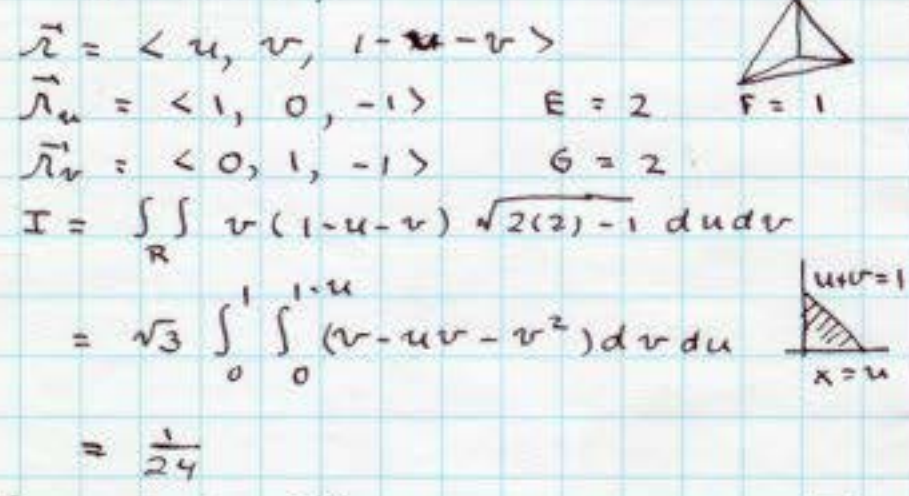 r⃗ = < u, v, 1-u-v >
r⃗u = < 1, 0, -1 > E = 2 F = 1
r⃗v = < 0, 1, -1 > G = 2
I = ∫∫R v(1-u-v) √2(2)-1 du dv
= √3 ∫₀¹ ∫₀¹⁻ᵘ (v-uv-v²) dv du
u+v=1
x=u
= 1/24